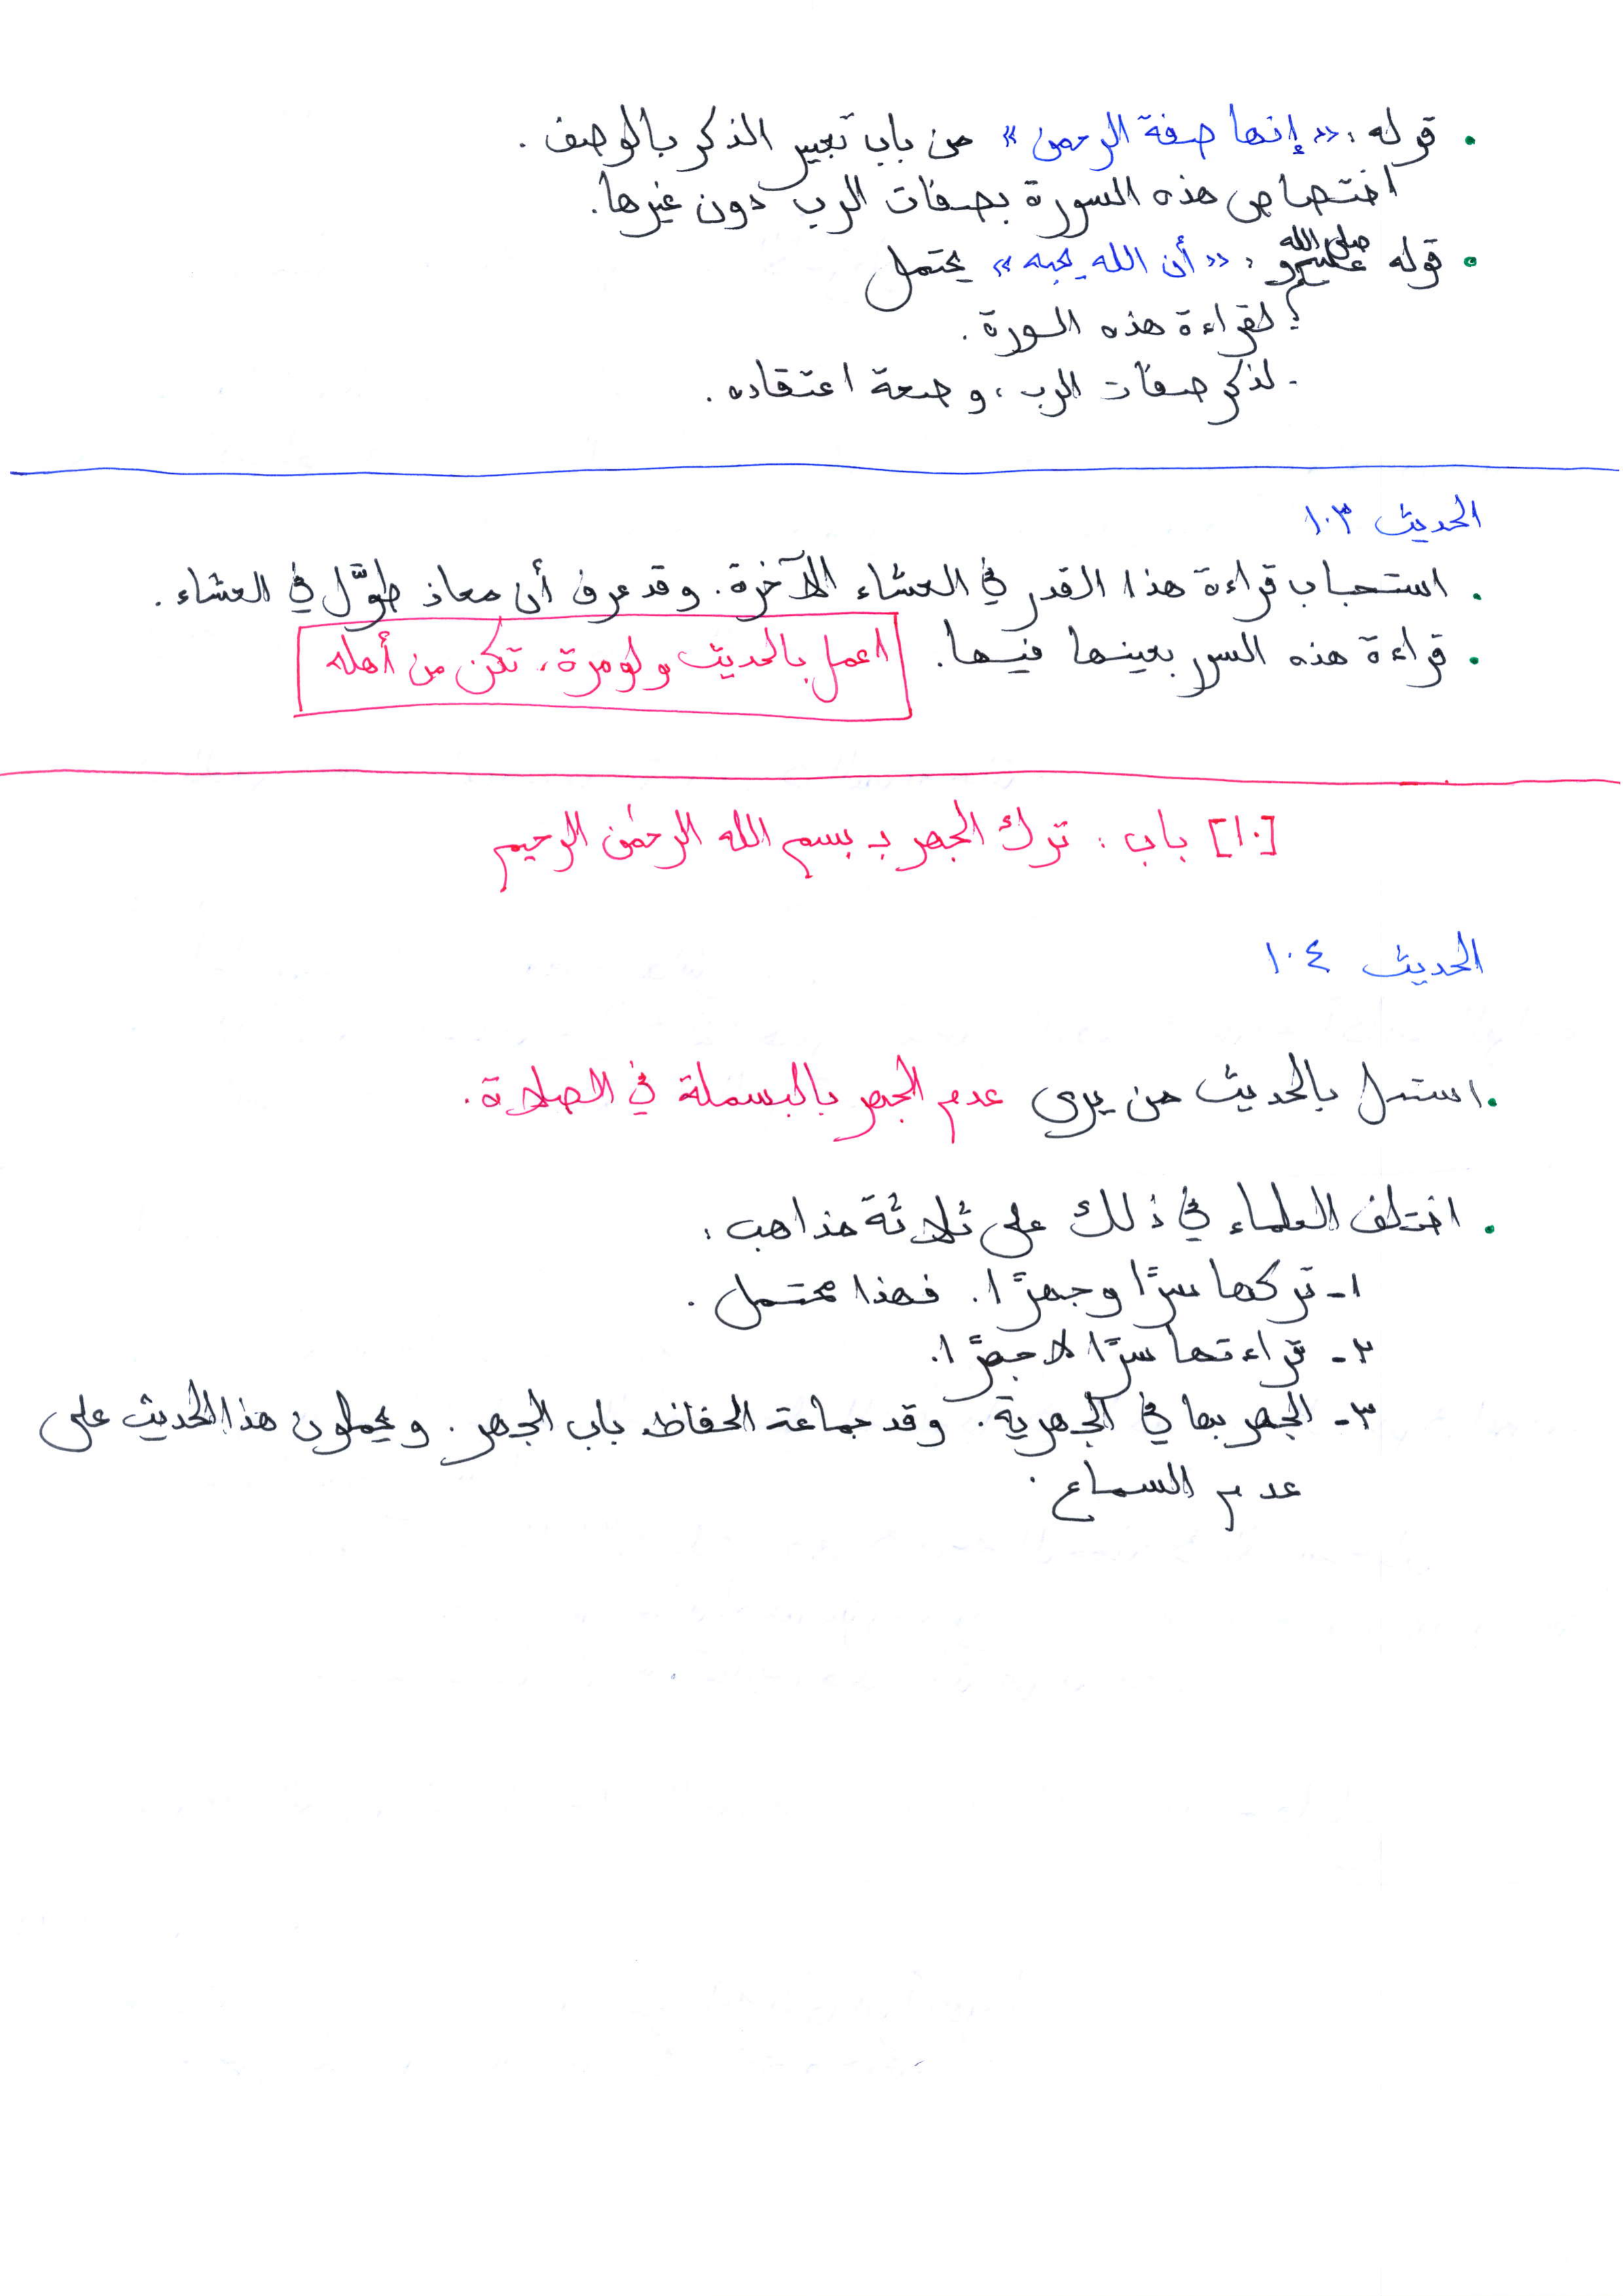 • قوله: «إنها صفة الرحمن» من باب تعبير الذكر بالوصف.
اختصاص هذه السورة بصفات الرب دون غيرها.
• قوله صلى الله عليه وسلم: «أن الله يحبه» يحتمل
- لقراءة هذه السورة.
- لذكر صفات الرب، وصحة اعتقاده.
الحديث ١٠٣
• استحباب قراءة هذا القدر في العشاء الآخرة. وقد عرف أن معاذ طوَّل في العشاء.
• قراءة هذه السور بعينها فيها. اعمل بالحديث ولو مرة، تكن من أهله
[١٠] باب: ترك الجهر بـ بسم الله الرحمٰن الرحيم
الحديث ١٠٤
• استدل بالحديث من يرى عدم الجهر بالبسملة في الصلاة.
• اختلف العلماء في ذلك على ثلاثة مذاهب:
١- تركها سرًّا وجهرًا. فهذا محتمل.
٢- قراءتها سرًّا لا جهرًا.
٣- الجهر بها في الجهرية. وقد جماعة الحفاظ باب الجهر. ويحملون هذا الحديث على
عدم السماع.